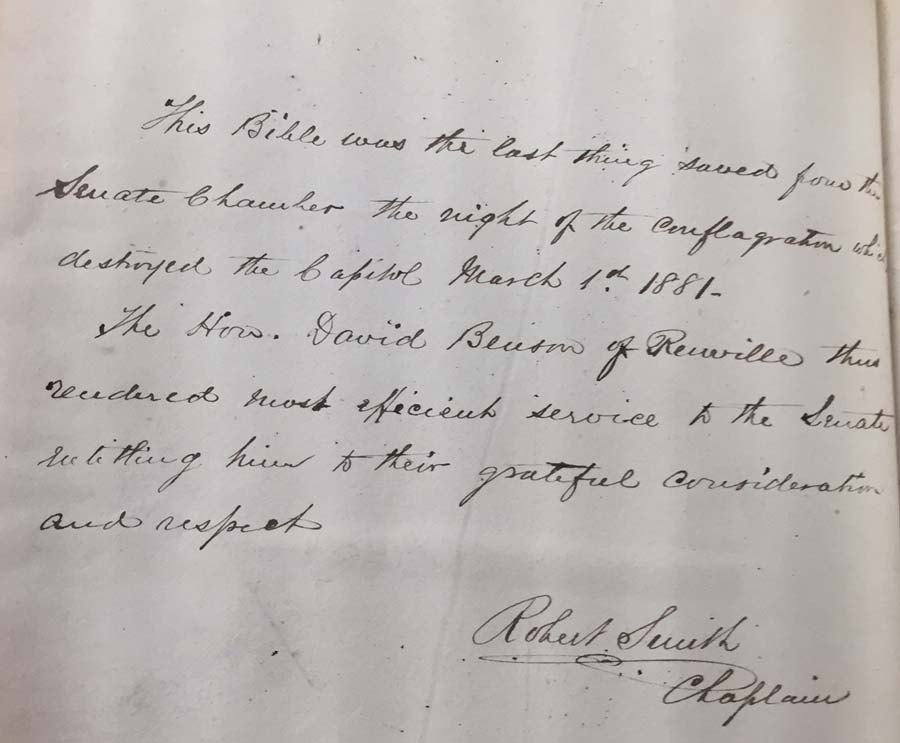 This Bible was the last thing saved from the
Senate Chamber the night of the conflagration which
destroyed the Capitol March 1st 1881-
The Hon. David Benson of Renville thus
rendered most efficient service to the Senate
entitling him to their grateful consideration
and respect
Robert Smith
Chaplain